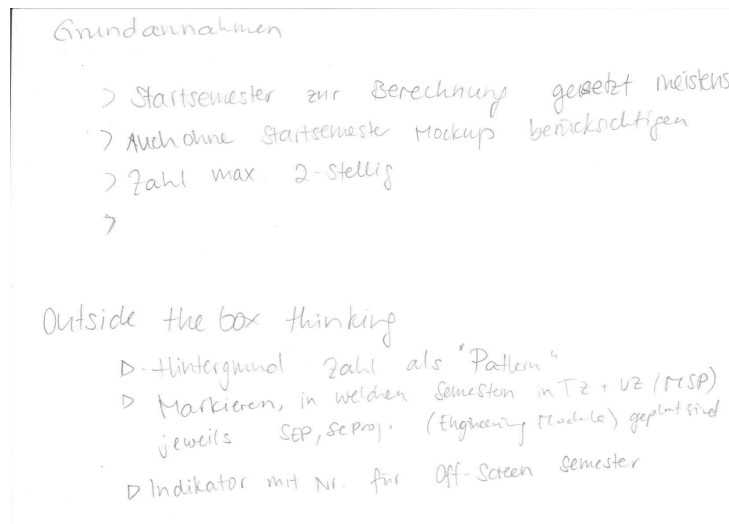 Grundannahmen
> Startsemester zur Berechnung gesetzt meistens
> Auch ohne Startsemester Mockup berücksichtigen
> Zahl max. 2-stellig
>
Outside the box thinking
▷ Hintergrund Zahl als "Pattern"
▷ Markieren, in welchen Semestern in TZ + VZ (MSP)
jeweils SEP, SeProj. (Engineering Module) geplant sind
▷ Indikator mit Nr. für Off-Screen Semester